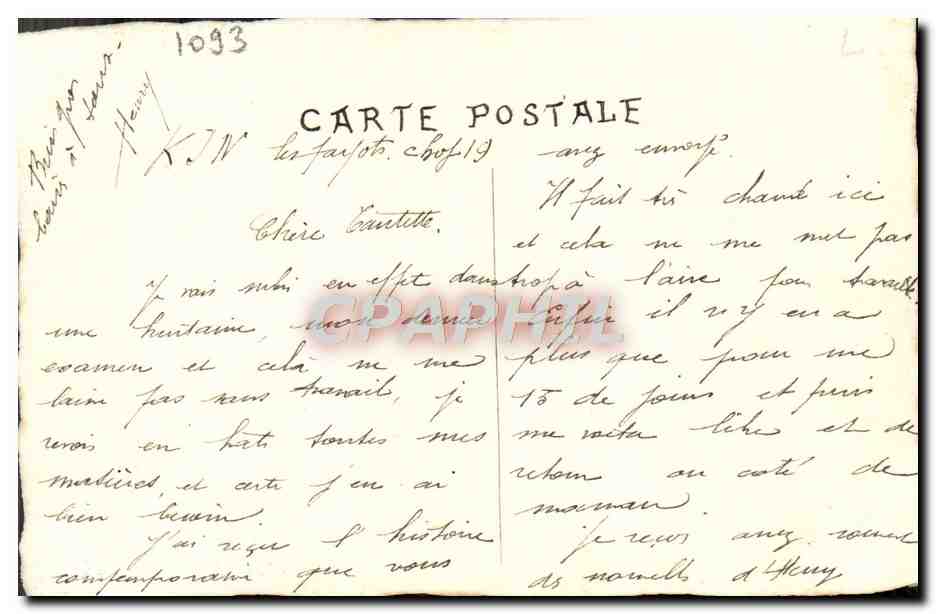 1093
CARTE POSTALE
Chère Tantette.
Je vais subir en effet dans
une huitaine, mon dernier
examen et cela ne me
laisse pas sans travail, je
revois en hâte toutes mes
matières, et certe j'en ai
bien besoin.
J'ai reçu l'histoire
contemporaine que vous
avez envoyé.
Il fait très chaud ici
et cela ne me met pas
trop à l'aise pour travailler.
Enfin il n'y en a
plus que pour une
15 de jours et puis
me voila libre et de
retour au coté de
maman.
Je reçois assez souvent
des nouvelles d'Henry
Henry
CPAPHIL